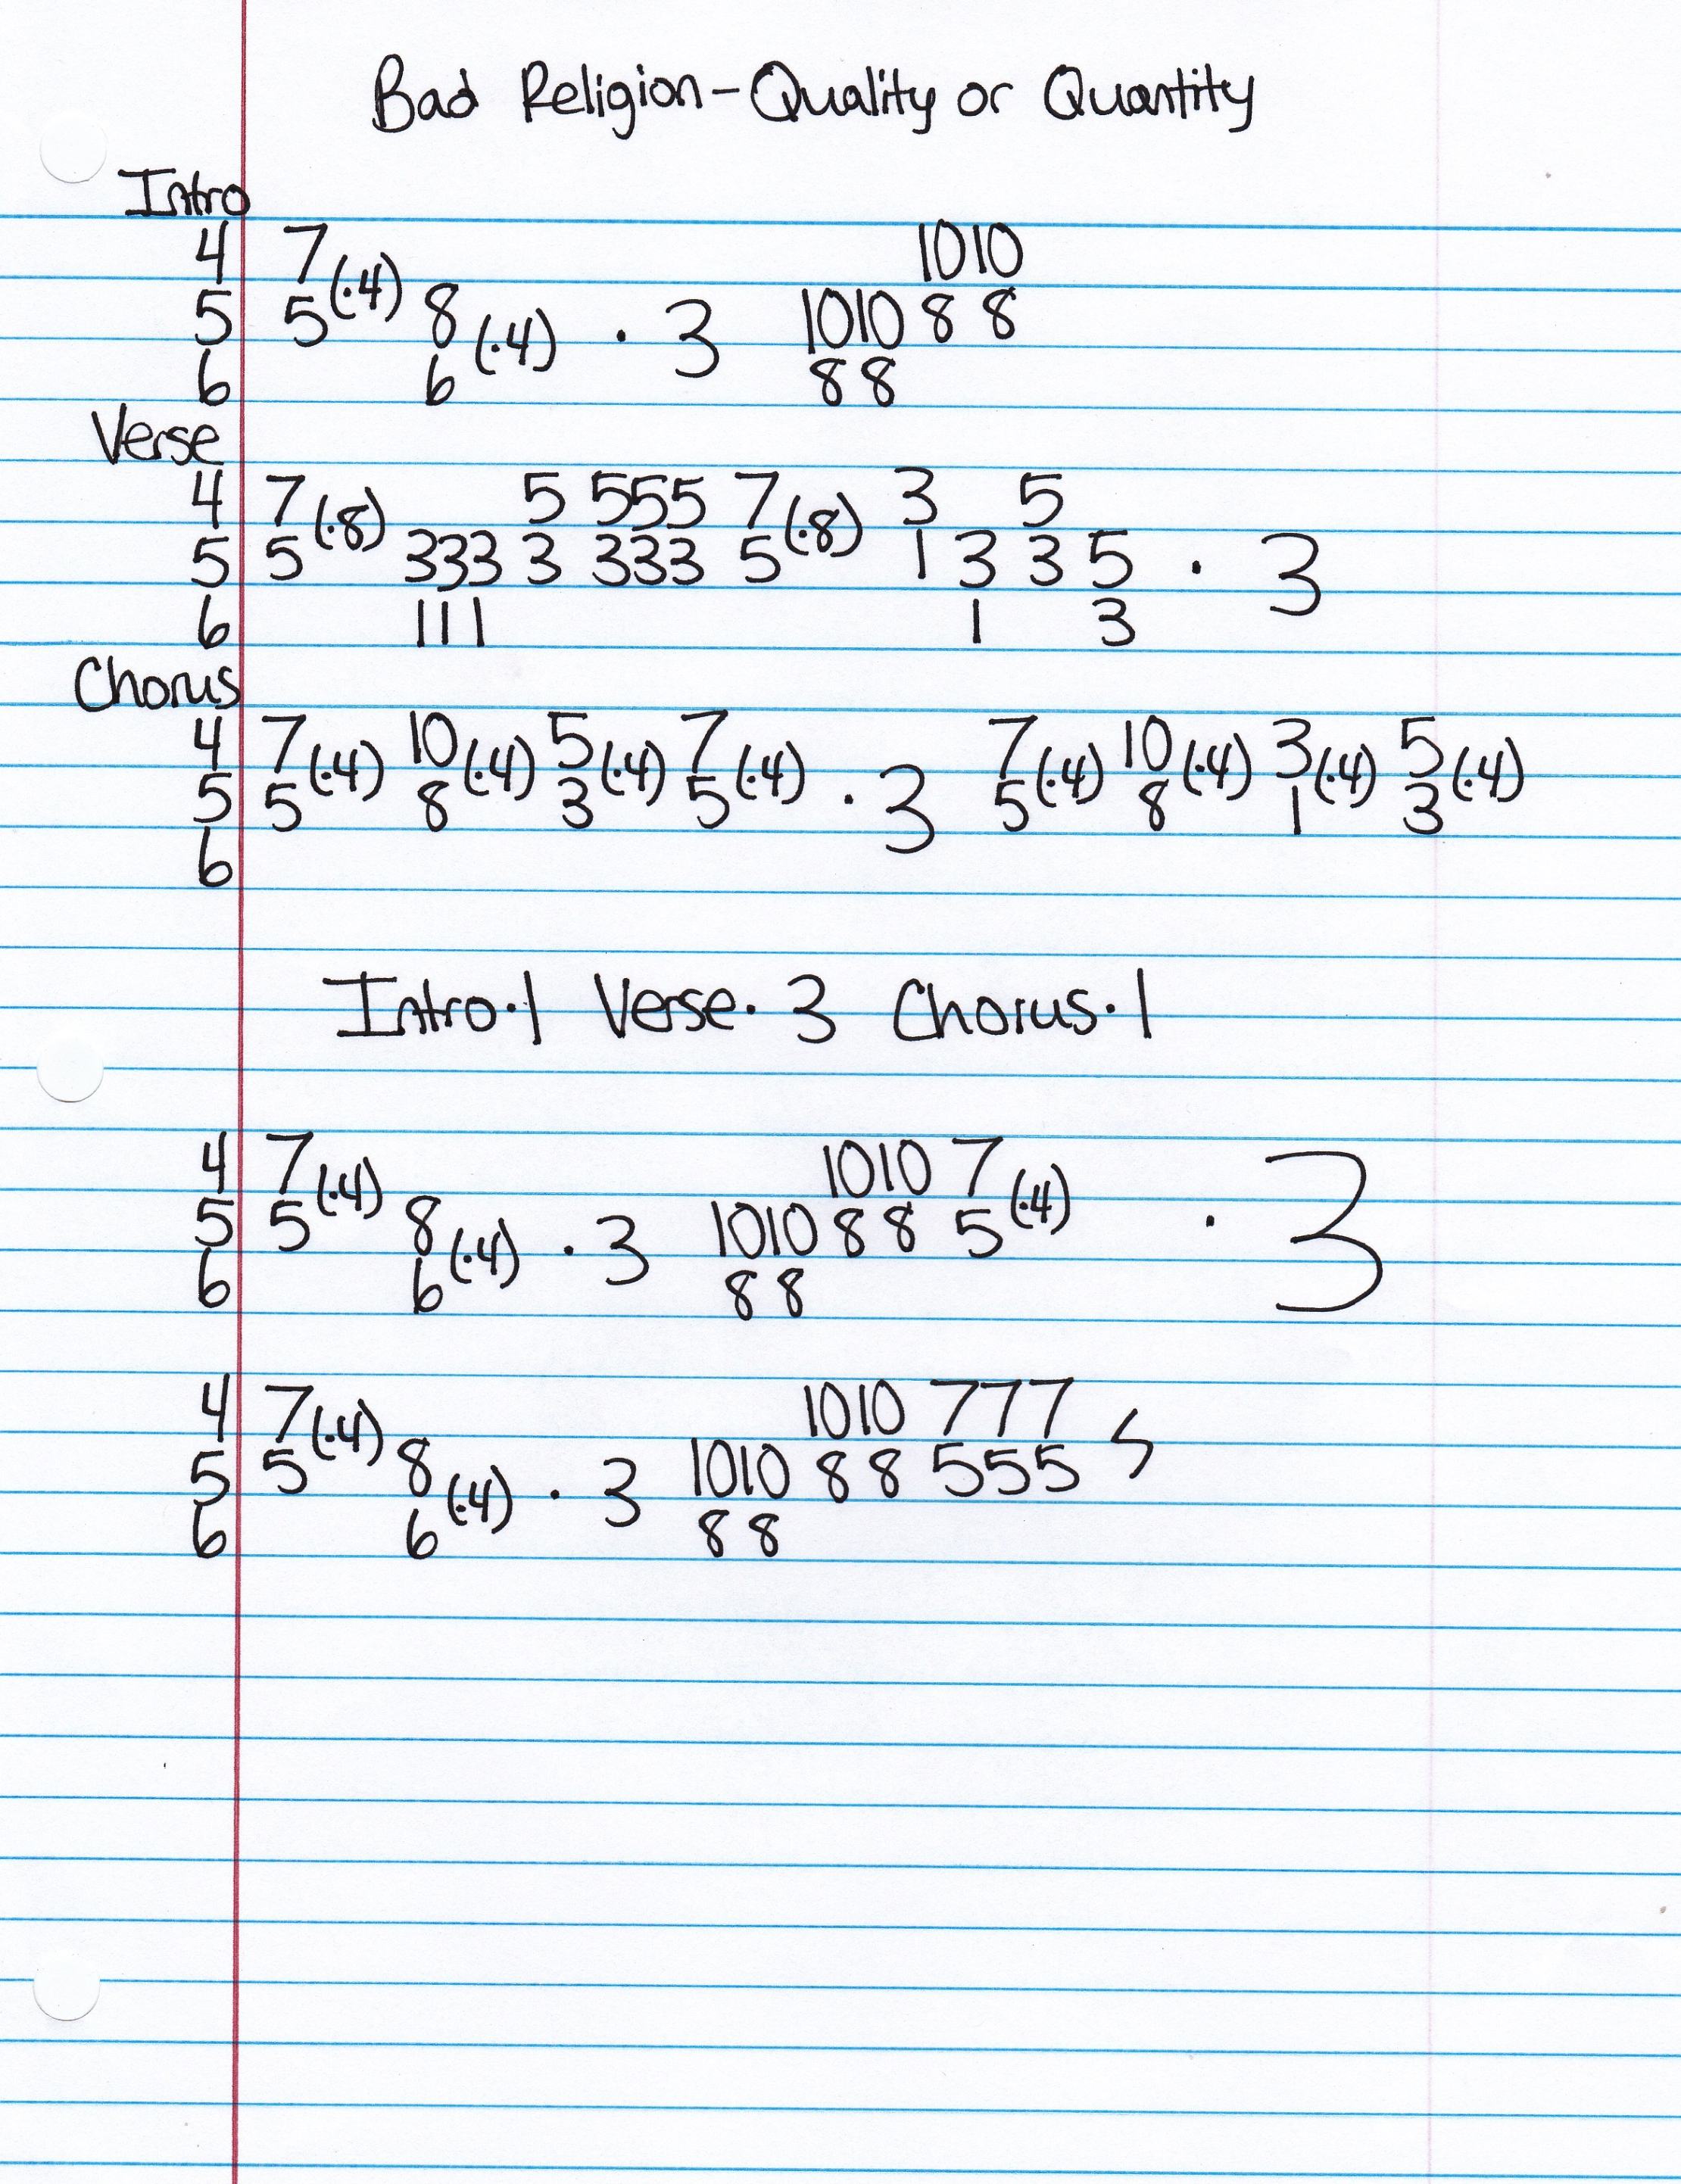 Bad Religion - Quality or Quantity
Intro
4 7 (·4) 1010
5 5 8 (·4) · 3 1010 8 8
6 6 88
Verse
4 7 (·8) 5 555 7 (·8) 3 5
5 5 333 3 333 5 1 3 3 5 · 3
6 111 1 3
Chorus
4 7 (·4) 10 (·4) 5 (·4) 7 (·4) 7 (·4) 10 (·4) 3 (·4) 5 (·4)
5 5 8 3 5 · 3 5 8 1 3
6
Intro·1 Verse·3 Chorus·1
4 7 (·4) 1010 7 (·4) · 3
5 5 8 (·4) · 3 1010 8 8 5
6 6 8 8
4 7 (·4) 1010 777
5 5 8 (·4) · 3 1010 8 8 555
6 6 8 8